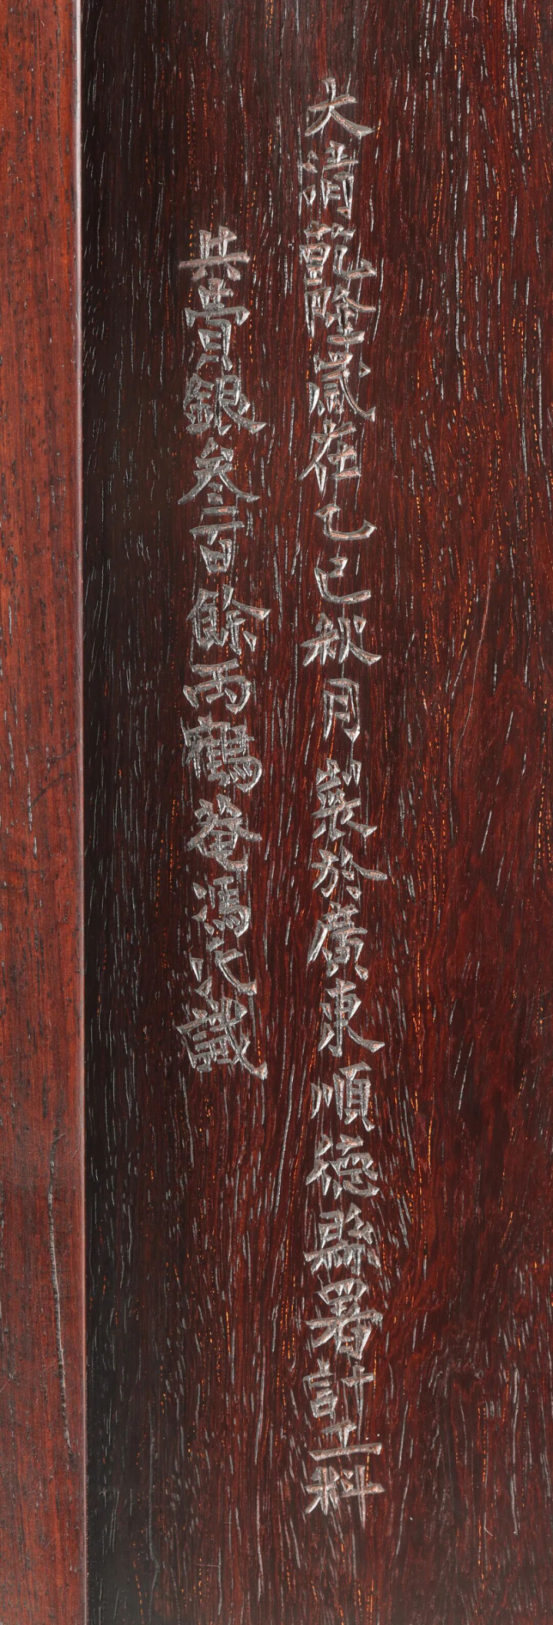 大清乾隆歲在乙巳秋月製於廣東順德縣署計工料
共費銀叁百餘両鶴菴馮氏識